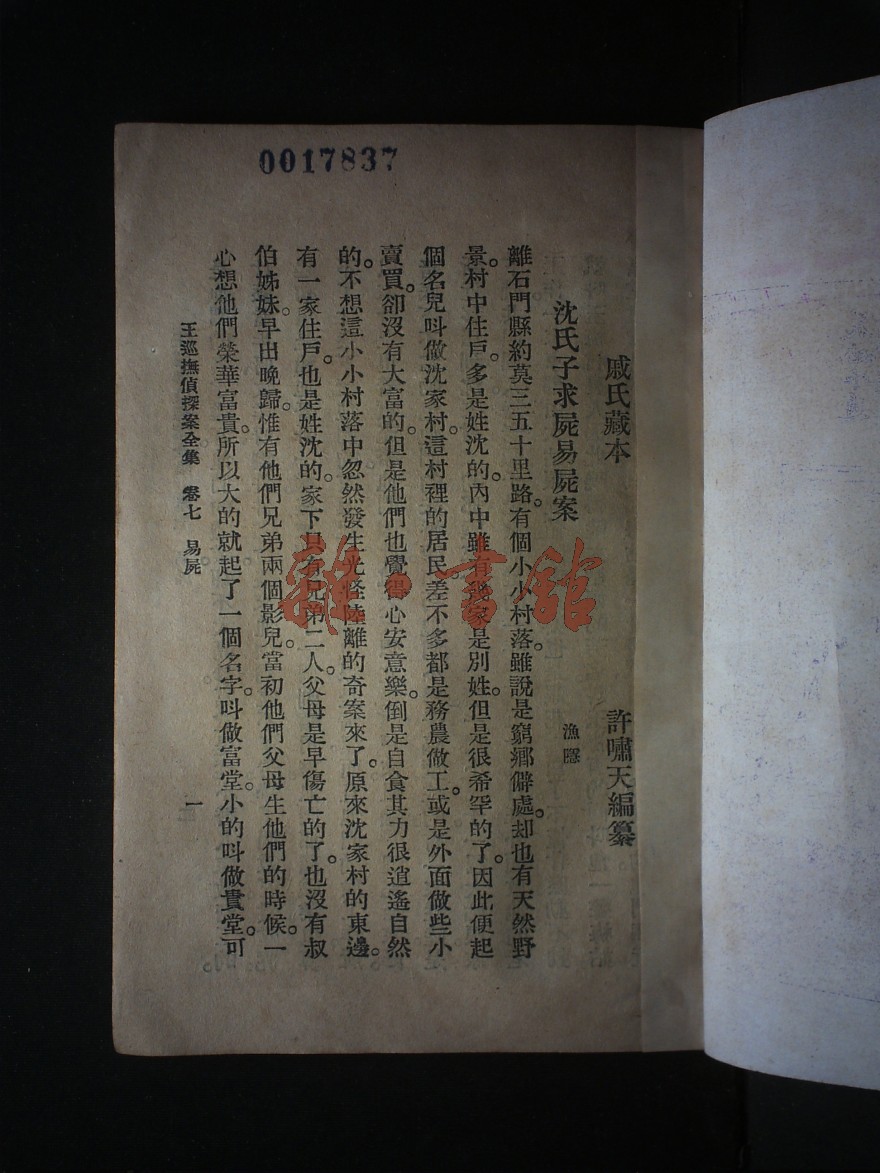 0017837
戚氏藏本　許嘯天編纂
沈氏子求屍易屍案　漁隱
離石門縣約莫三五十里路。有個小小村落。雖說是窮鄉僻處。却也有天然野
景。村中住戶。多是姓沈的。內中雖有幾家是別姓。但是很希罕的了。因此便起
個名兒叫做沈家村。這村裡的居民。差不多都是務農做工。或是外面做些小
賣買。卻沒有大富的。但是他們也覺得心安意樂。倒是自食其力很逍遙自然
的。不想這小小村落中忽然發生光怪陸離的奇案來了。原來沈家村的東邊。
有一家住戶。也是姓沈的。家下只有兄弟二人。父母是早傷亡的了。也沒有叔
伯姊妹。早出晚歸。惟有他們兄弟兩個影兒。當初他們父母生他們的時候。一
心想他們榮華富貴。所以大的就起了一個名字。叫做富堂。小的叫做貴堂。可
王巡撫偵探案全集　卷七　易屍　一
雜·書館